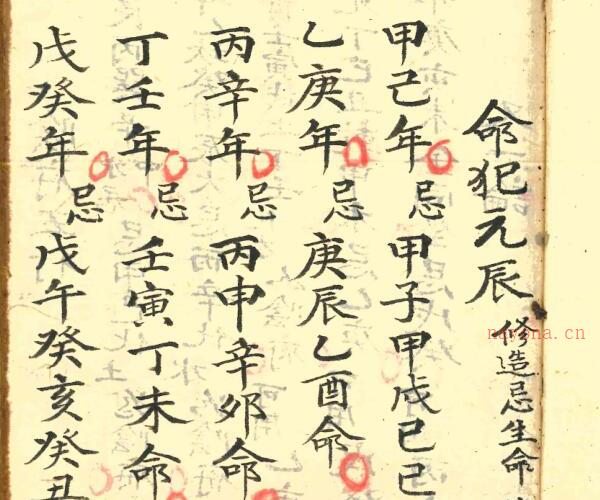 命犯元辰 修造忌生命
甲己年忌甲子甲戌己己
乙庚年忌庚辰乙酉命
丙辛年忌丙申辛卯命
丁壬年忌壬寅丁未命
戊癸年忌戊午癸亥癸丑
nayona.cn